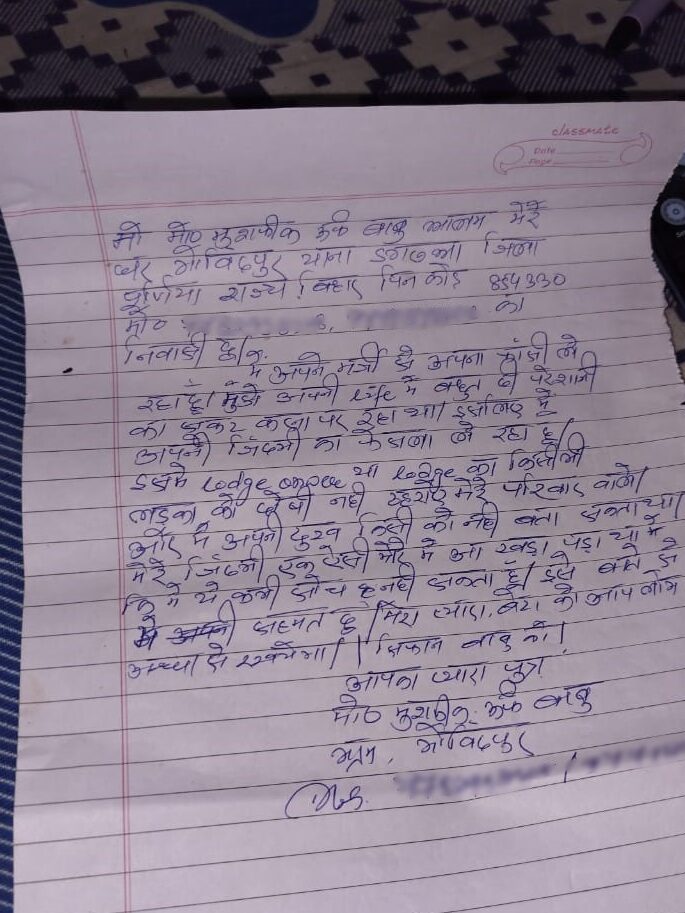 CLASSMATE
Date
Page
मो मो० मुशफीक उर्फ बाबु आलम मेरे
घर गोविंदपुर थाना डगरूआ जिला
पूर्णिया राज्य बिहार पिन कोड 854330
मो० का
निवासी हूँ।
मै अपने मर्जी से अपना फांसी ले
रहा हूँ। मुझे अपनी life में बहुत ही परेशानी
का झकट करना पर रहा था। इसलिए मै
अपनी जिंदगी का फैसला ले रहा हूँ।
इसमे lodge या lodge का किसी भी
लड़का को दोषी नही ठहराए मेरे परिवार वाले।
और मै अपनी दुःख किसी को नही बता सकता था।
मेरे जिंदगी एक ऐसी मोर मे आ खड़ा पड़ा था मै
कि मे ये कभी सोच नही सकता हूँ। इसे बात से
मै अपनी सहमत हूँ। मेरा प्यारा बेटा को आप लोग
अच्छा से रखियेगा।
आपका प्यारा पुत्र
मो० मुशफीक उर्फ बाबु
ग्राम, गोविंदपुर